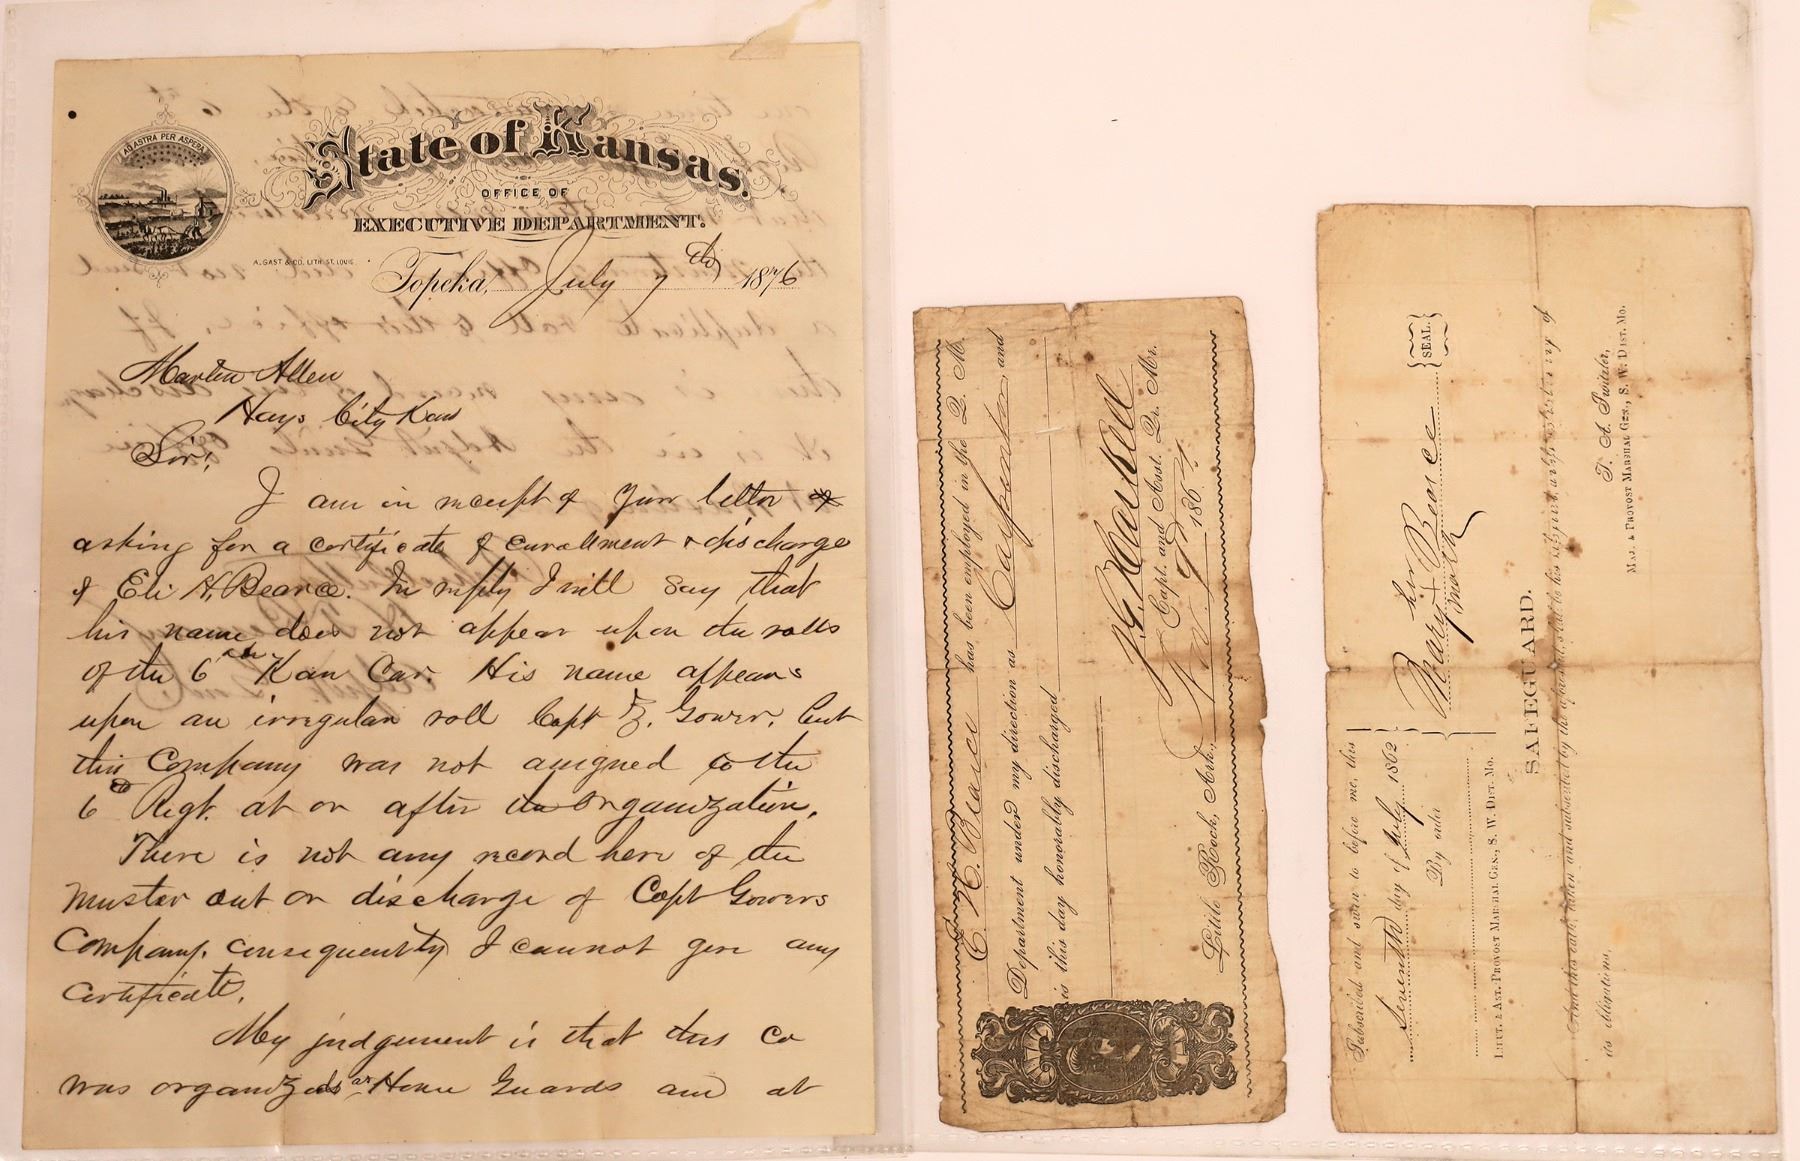 AD ASTRA PER ASPERA
State of Kansas.
OFFICE OF
EXECUTIVE DEPARTMENT.
A. GAST & CO. LITH. ST. LOUIS.
Topeka, July 7th 1876
Martin Allen
Hays City Kans
Sir:
I am in receipt of your letter
asking for a certificate of enrollment & discharge
of Eli H. Bearce. In reply I will say that
his name does not appear upon the rolls
of the 6th Kan Cav. His name appears
upon an irregular roll Capt Z. Gower, but
this Company was not assigned to the
6th Regt. at or after its organization.
There is not any record here of the
muster out or discharge of Capt Gowers
Company, consequently I cannot give any
certificate.
My judgement is that this Co
was organized as Home Guards and at
E. H. Bearce has been employed in the Q. M.
Department under my direction as Carpenter and
is this day honorably discharged
J. G. Haskell
Capt. and Asst. Qr. Mr.
Little Rock, Ark., Nov. 9th 1864
Subscribed and sworn to before me, this
Seventh day of July 1862
By order
LIEUT. & AST. PROVOST MARSHAL GEN., S. W. DIST. MO.
his
Mary Bearce
mark
{SEAL.}
SAFEGUARD.
And this oath, taken and subscribed by the aforesaid, shall be his safeguard,
its obligations,
T. A. Switzler,
MAJ. & PROVOST MARSHAL GEN., S. W. DIST. MO.